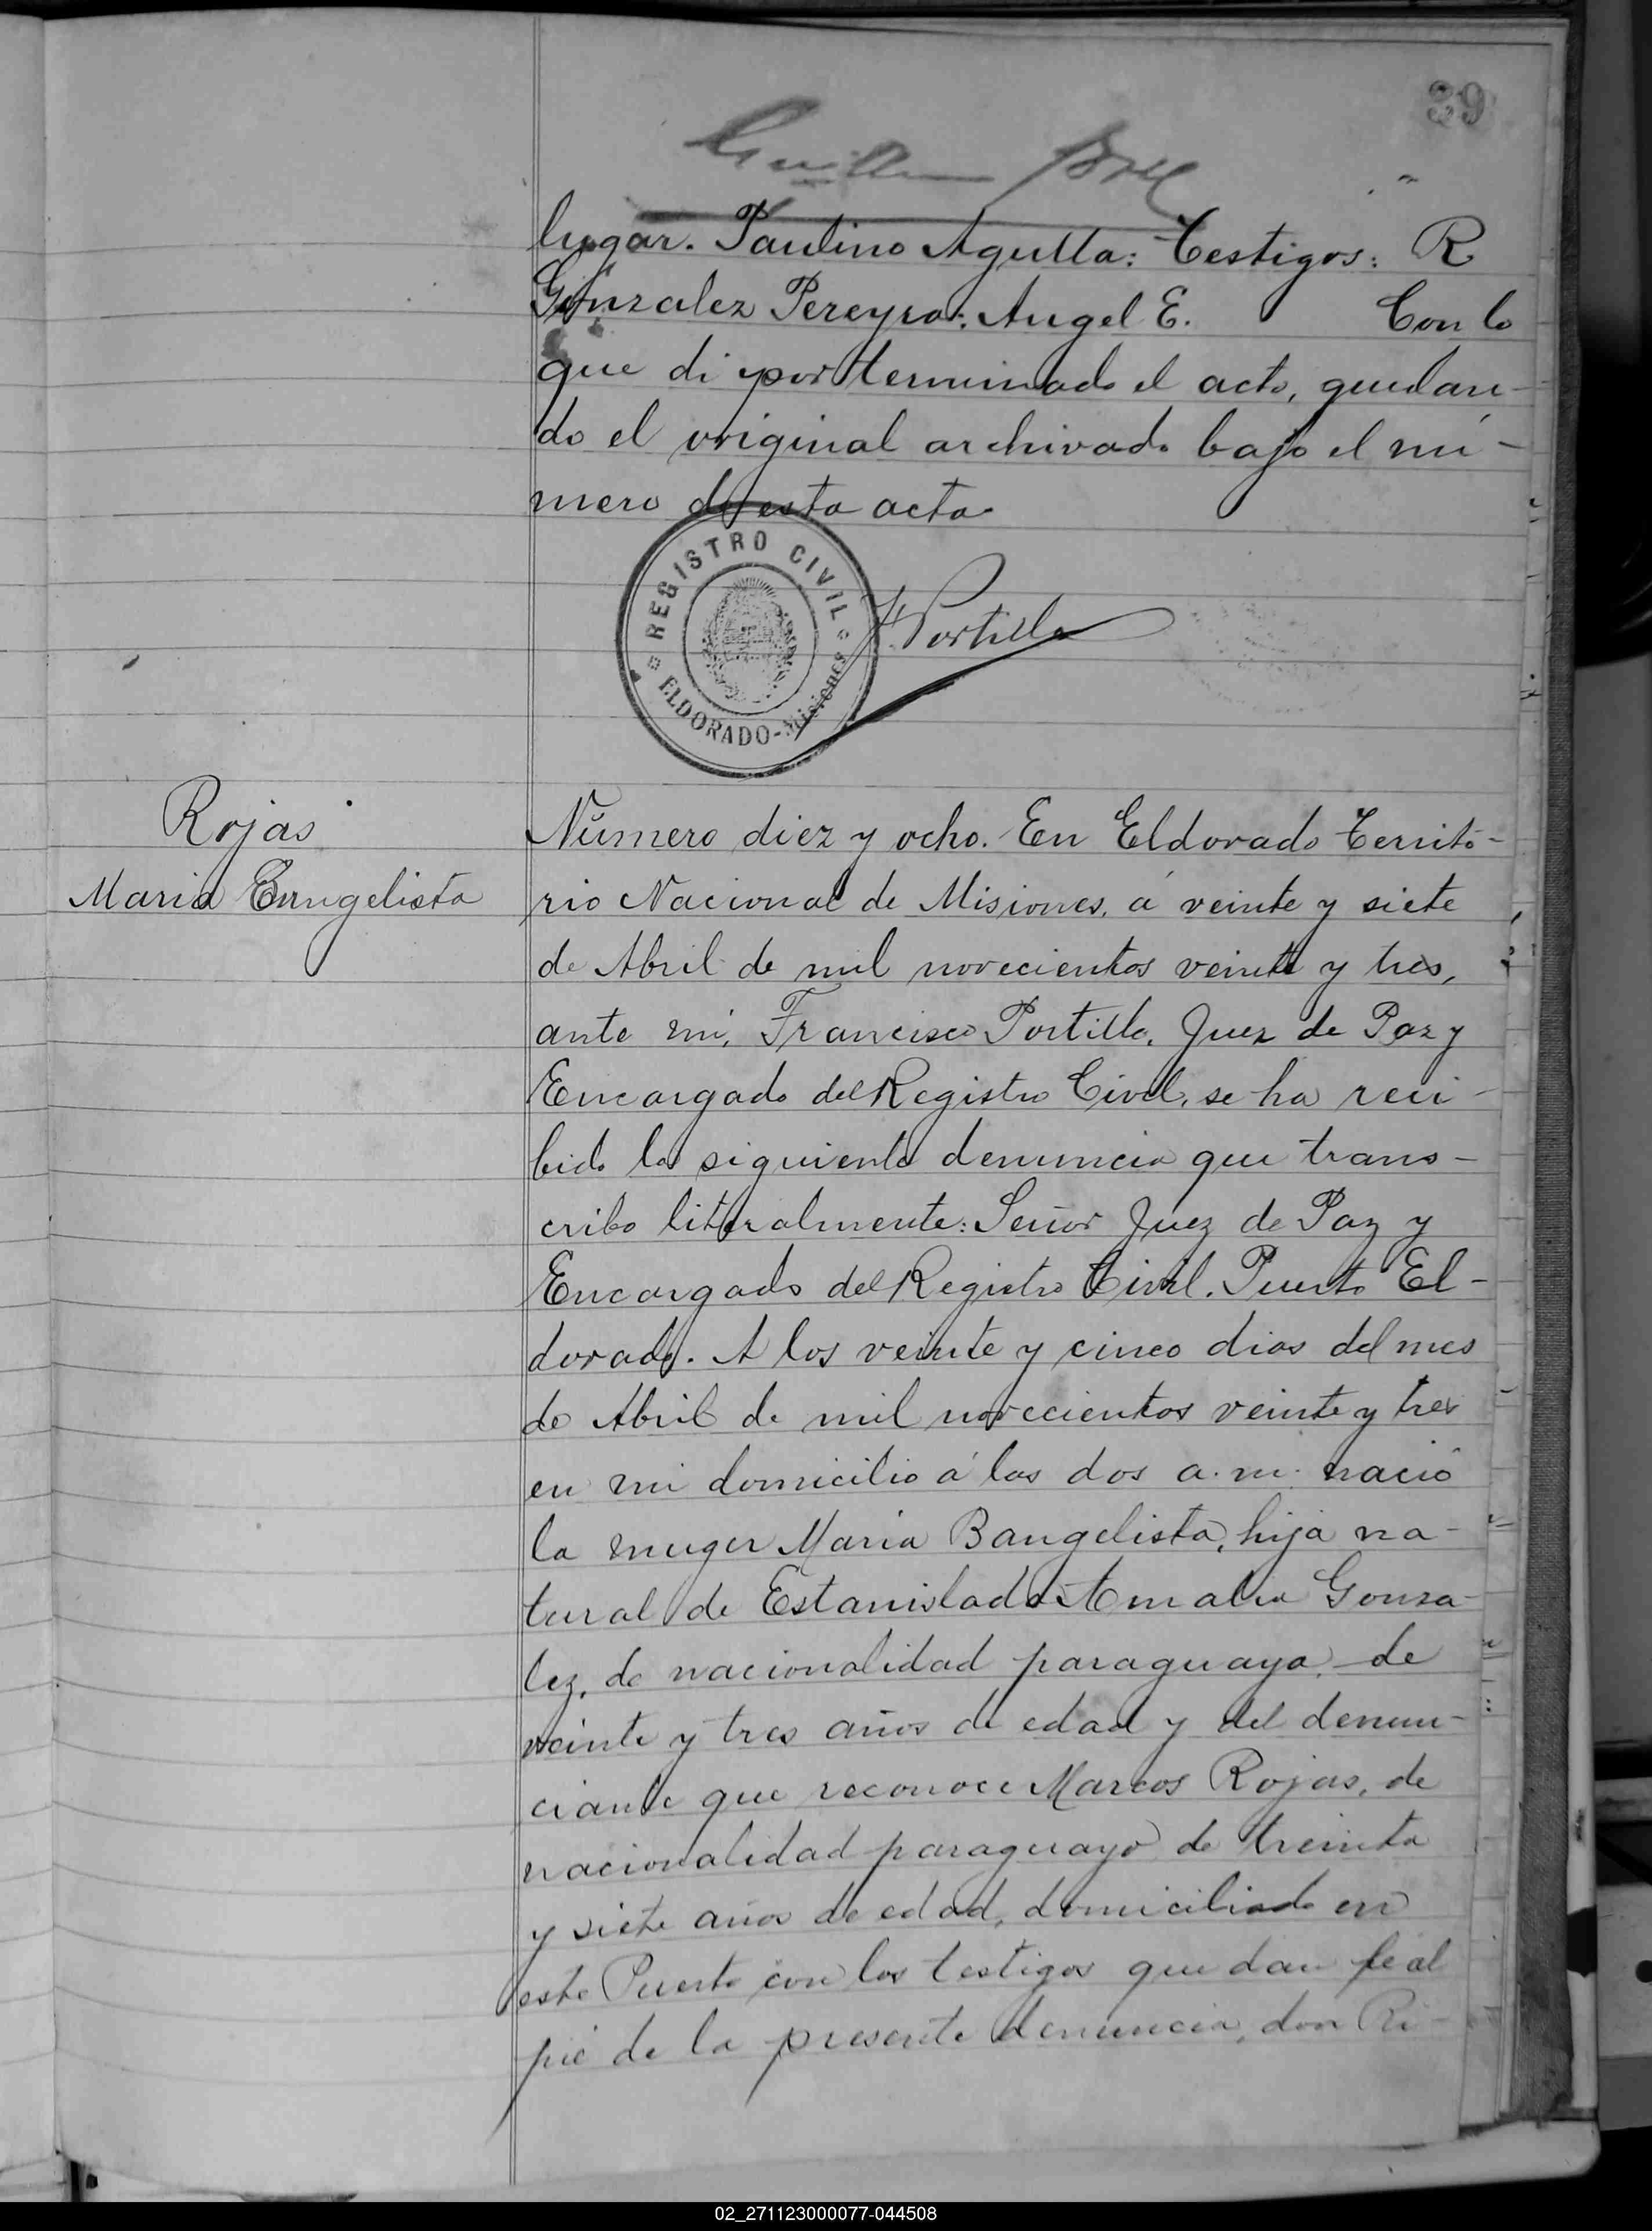 39
lugar. Paulino Agulla: Testigos: R
Gonzalez Pereyra: Angel E. Con lo
que di por terminado el acto, quedan-
do el original archivado bajo el nú-
mero de esta acta
REGISTRO CIVIL
ELDORADO-Misiones
F. Portillo
Rojas
Maria Evangelista
Número diez y ocho. En Eldorado Territo-
rio Nacional de Misiones, á veinte y siete
de Abril de mil novecientos veinte y tres,
ante mi, Francisco Portillo, Juez de Paz y
Encargado del Registro Civil, se ha reci-
bido la siguiente denuncia que trans-
cribo literalmente: Señor Juez de Paz y
Encargado del Registro Civil. Puerto El-
dorado. A los veinte y cinco dias del mes
de Abril de mil novecientos veinte y tres
en mi domicilio á las dos a.m. nació
la muger Maria Bangelista, hija na-
tural de Estanislada Amalia Gonza-
lez, de nacionalidad paraguaya, de
veinte y tres años de edad y del denun-
ciante que reconoce Marcos Rojas, de
nacionalidad paraguayo de treinta
y siete años de edad, domiciliado en
este Puerto con los testigos que dan fe al
pié de la presente denuncia, don Ri-
02_271123000077-044508